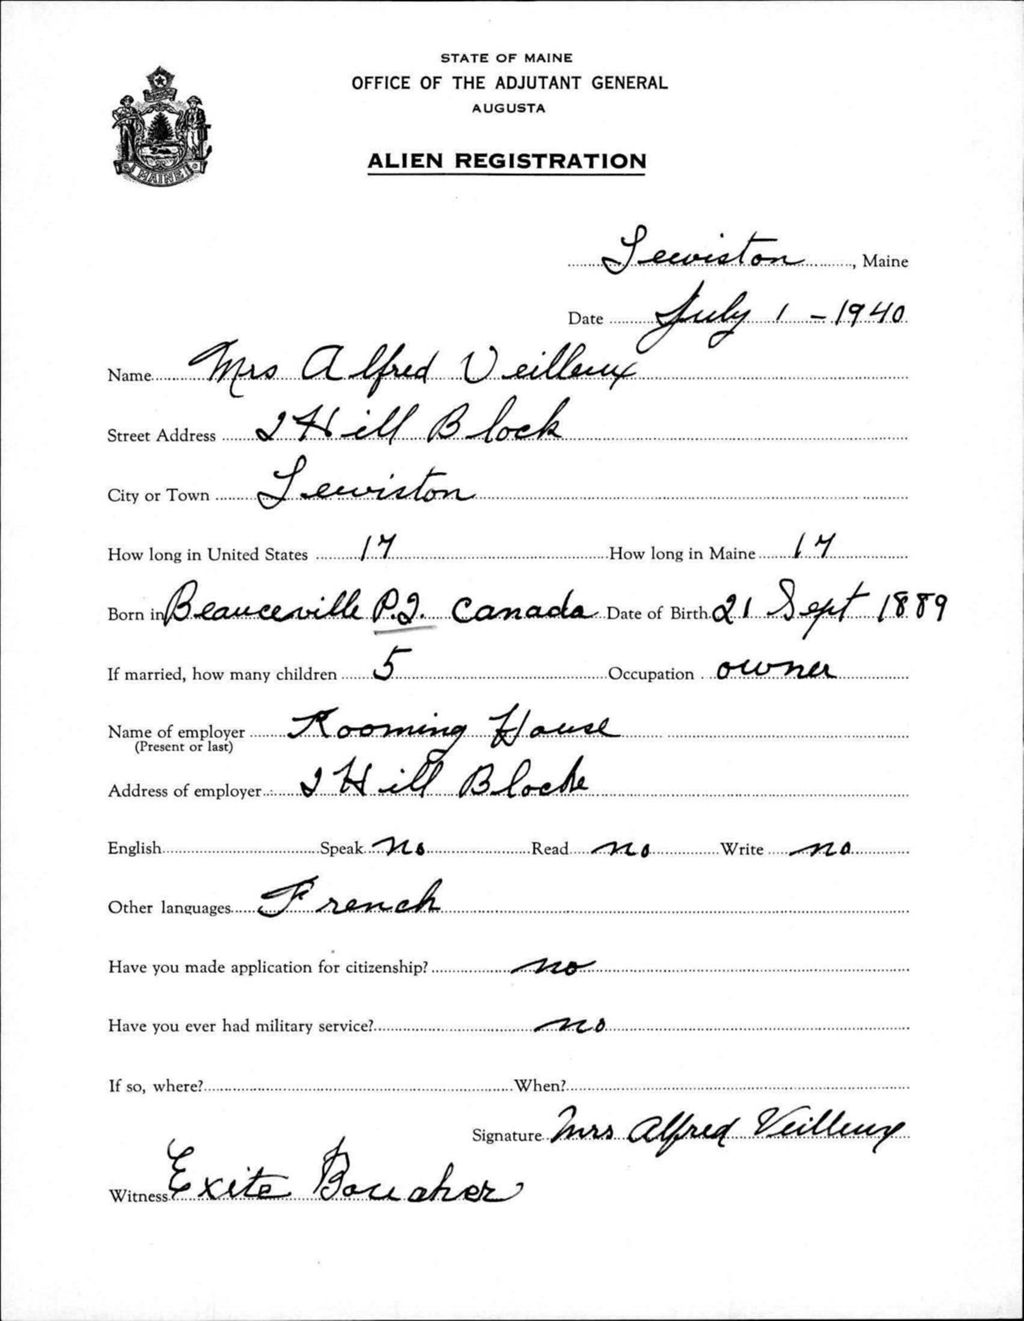 STATE OF MAINE
OFFICE OF THE ADJUTANT GENERAL
AUGUSTA
ALIEN REGISTRATION
MAINE
Lewiston, Maine
Date July 1 - 1940
Name Mrs Alfred Veilleux
Street Address 2 Hill Block
City or Town Lewiston
How long in United States 17 How long in Maine 17
Born in Beauceville P.Q. Canada Date of Birth 21 Sept 1889
If married, how many children 5 Occupation owner
Name of employer Rooming House
(Present or last)
Address of employer 2 Hill Block
English Speak no Read no Write no
Other languages French
Have you made application for citizenship? no
Have you ever had military service? no
If so, where? When?
Signature Mrs Alfred Veilleux
Witness